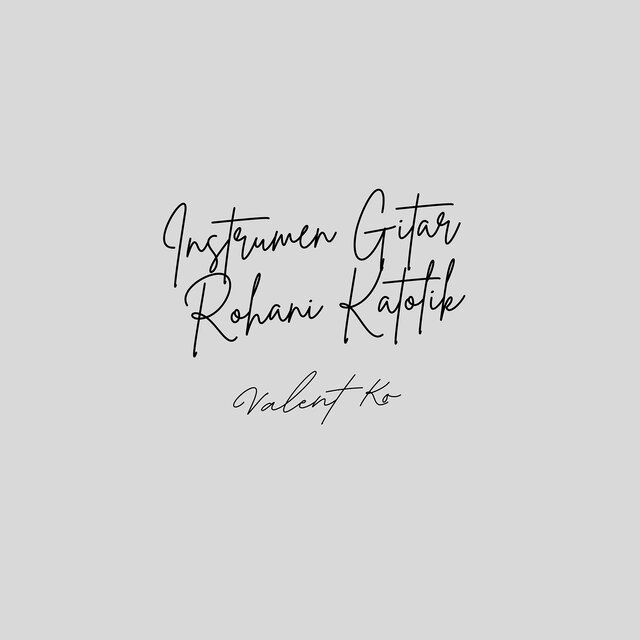 Instrumen Gitar
Rohani Katolik
Valent Ko